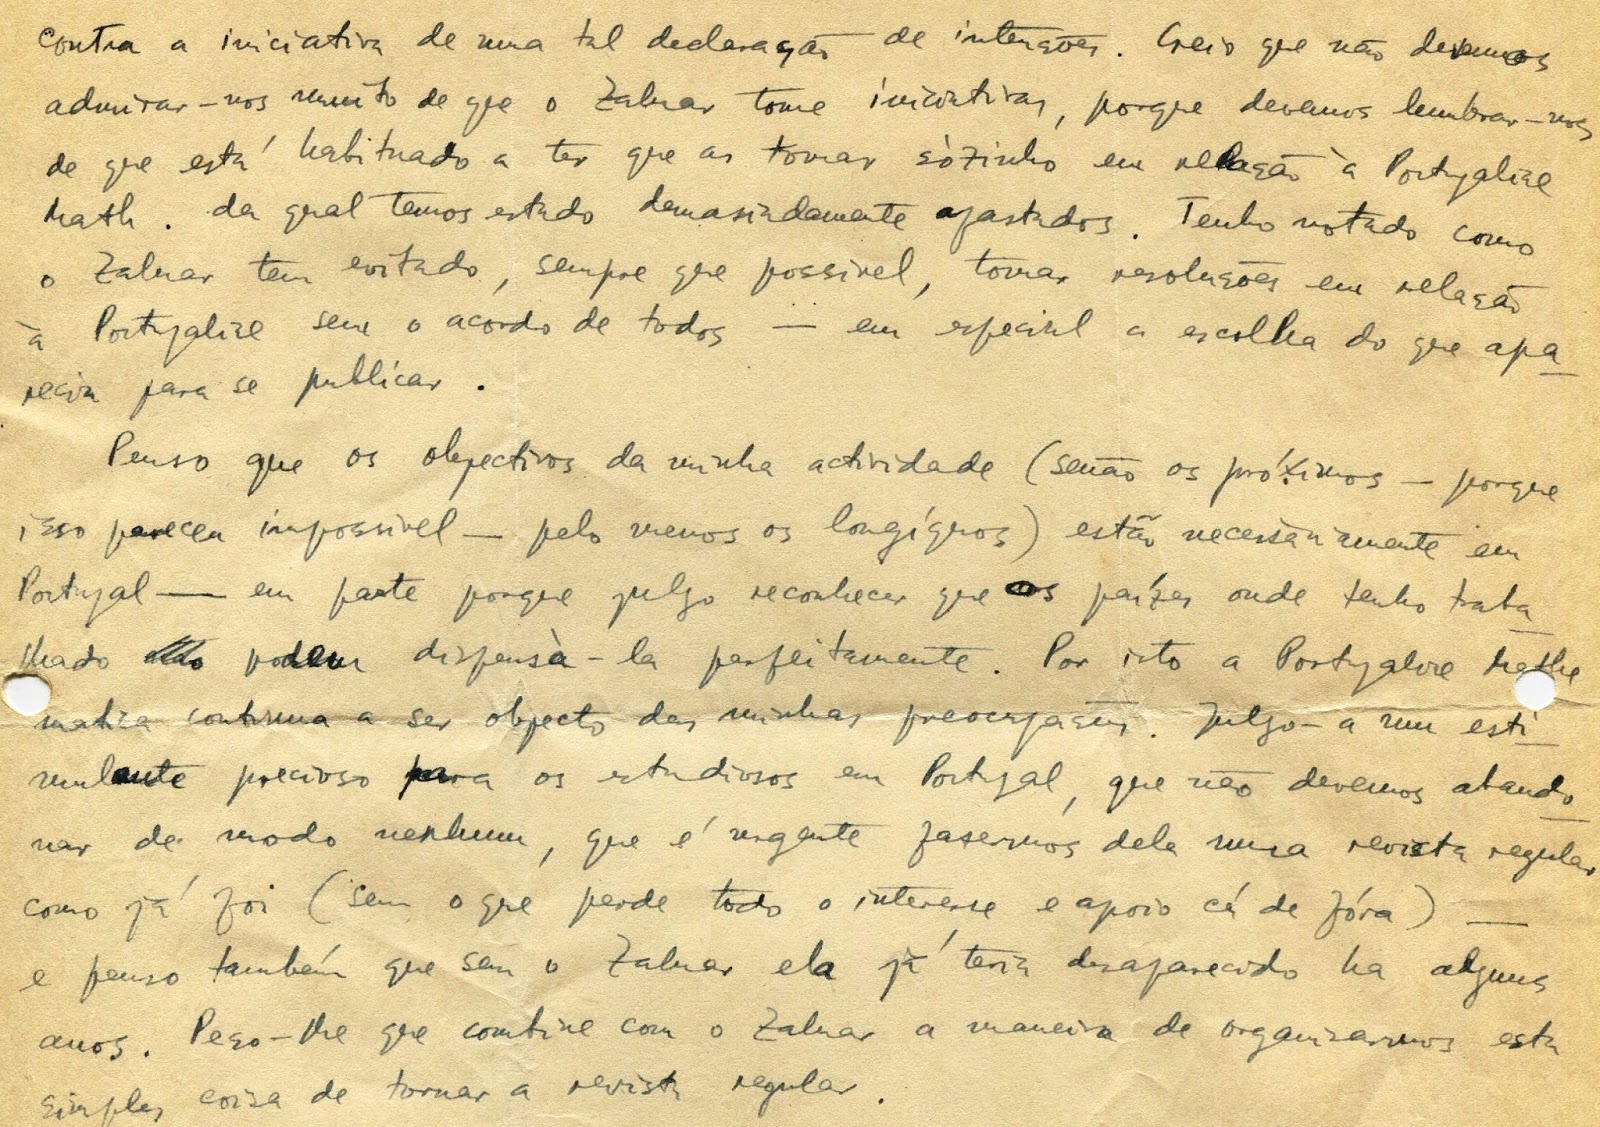 contra a iniciativa de uma tal declaração de intenções. Creio que não devemos
admirar-nos muito de que o Zaluar tome iniciativas, porque devemos lembrar-nos
de que está habituado a ter que as tomar sòzinho em relação à Portugaliae
Math. da qual temos estado demasiadamente afastados. Tenho notado como
o Zaluar tem evitado, sempre que possivel, tomar resoluções em relação
à Portugaliae sem o acordo de todos — em especial a escolha do que apa-
recia para se publicar.
Penso que os objectivos da minha actividade (senão os próximos — porque
isso parecem impossivel — pelo menos os longíquos) estão necessàriamente em
Portugal — em parte porque julgo reconhecer que os países onde tenho traba-
lhado podem dispensà-la perfeitamente. Por isto a Portugaliae Mathe
matica continua a ser objecto das minhas preocupações. Julgo-a um esti-
mulante precioso para os estudiosos em Portugal, que não devemos abando-
nar de modo nenhum, que é urgente fazermos dela uma revista regular
como já foi (sem o que perde todo o interesse e apoio cá de fóra) —
e penso também que sem o Zaluar ela já teria desaparecido ha alguns
anos. Peço-lhe que combine com o Zaluar a maneira de organizarmos esta
simples coisa de tornar a revista regular.